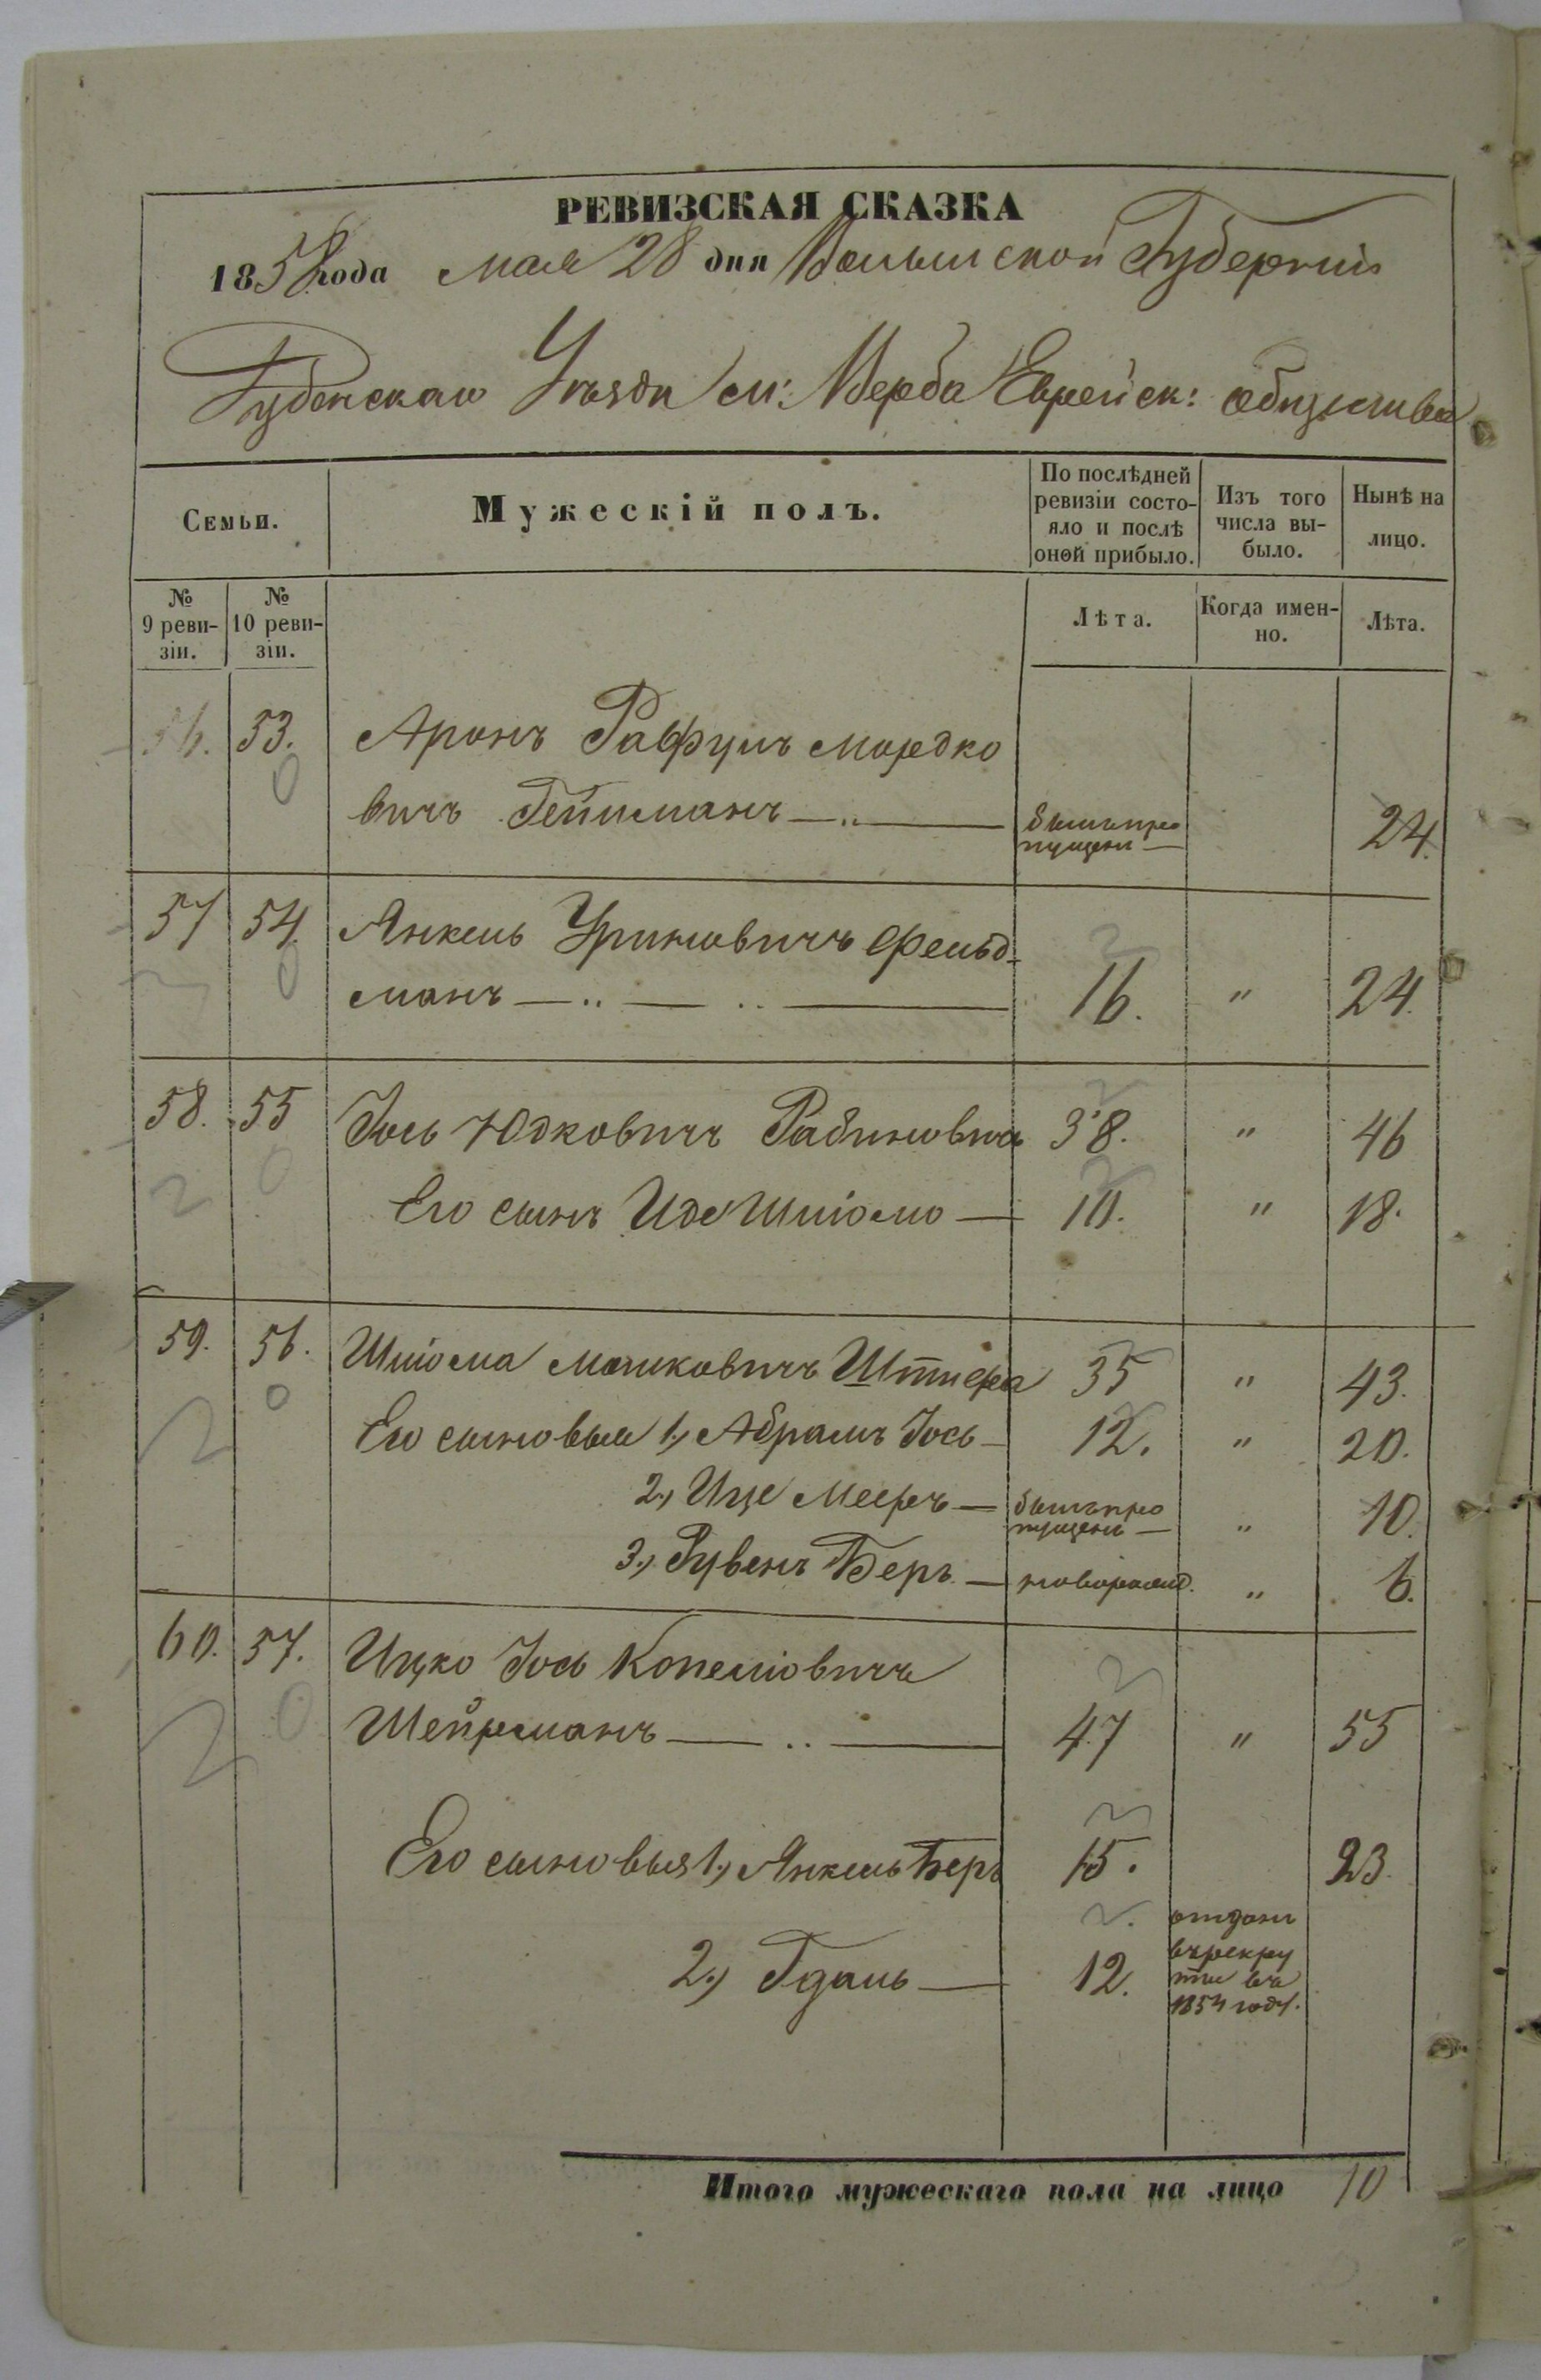 РЕВИЗСКАЯ СКАЗКА
1858 года мая 28 дня Волынской Губерніи
Дубенскаго Уѣзда м: Верба Еврейск: общества
Семьи.
Мужескій полъ.
По послѣдней ревизіи состо-
яло и послѣ оной прибыло.
Изъ того числа вы-
было.
Нынѣ на лицо.
№ 9 реви-
зіи.
№ 10 реви-
зіи.
Лѣта.
Когда имен-
но.
Лѣта.
56. 53. Аронъ Рафулъ Мордко
вичъ Гейшманъ — былъ про
пущенъ — 24.
57 54. Янкель Уриновичъ Фельд-
манъ — 16. " 24.
58. 55 Іось Юдковичъ Рабиновичъ 38. " 46
Его сынъ Иде Шліомо — 10. " 18.
59. 56. Шліома Мошковичъ Штифа 35 " 43.
Его сыновья 1, Абрамъ Іось — 12. " 20.
2, Ице Мееръ — былъ про
пущенъ — " 10.
3, Рувенъ Беръ — новорожд. " 6.
60. 57. Ицко Іось Копеліовичъ
Шейрманъ — 47 " 55
Его сыновья 1, Янкель Беръ 15. 23.
2, Гдаль — 12. отданъ
въ рекру
ты въ
1854 году.
Итого мужескаго пола на лицо 10